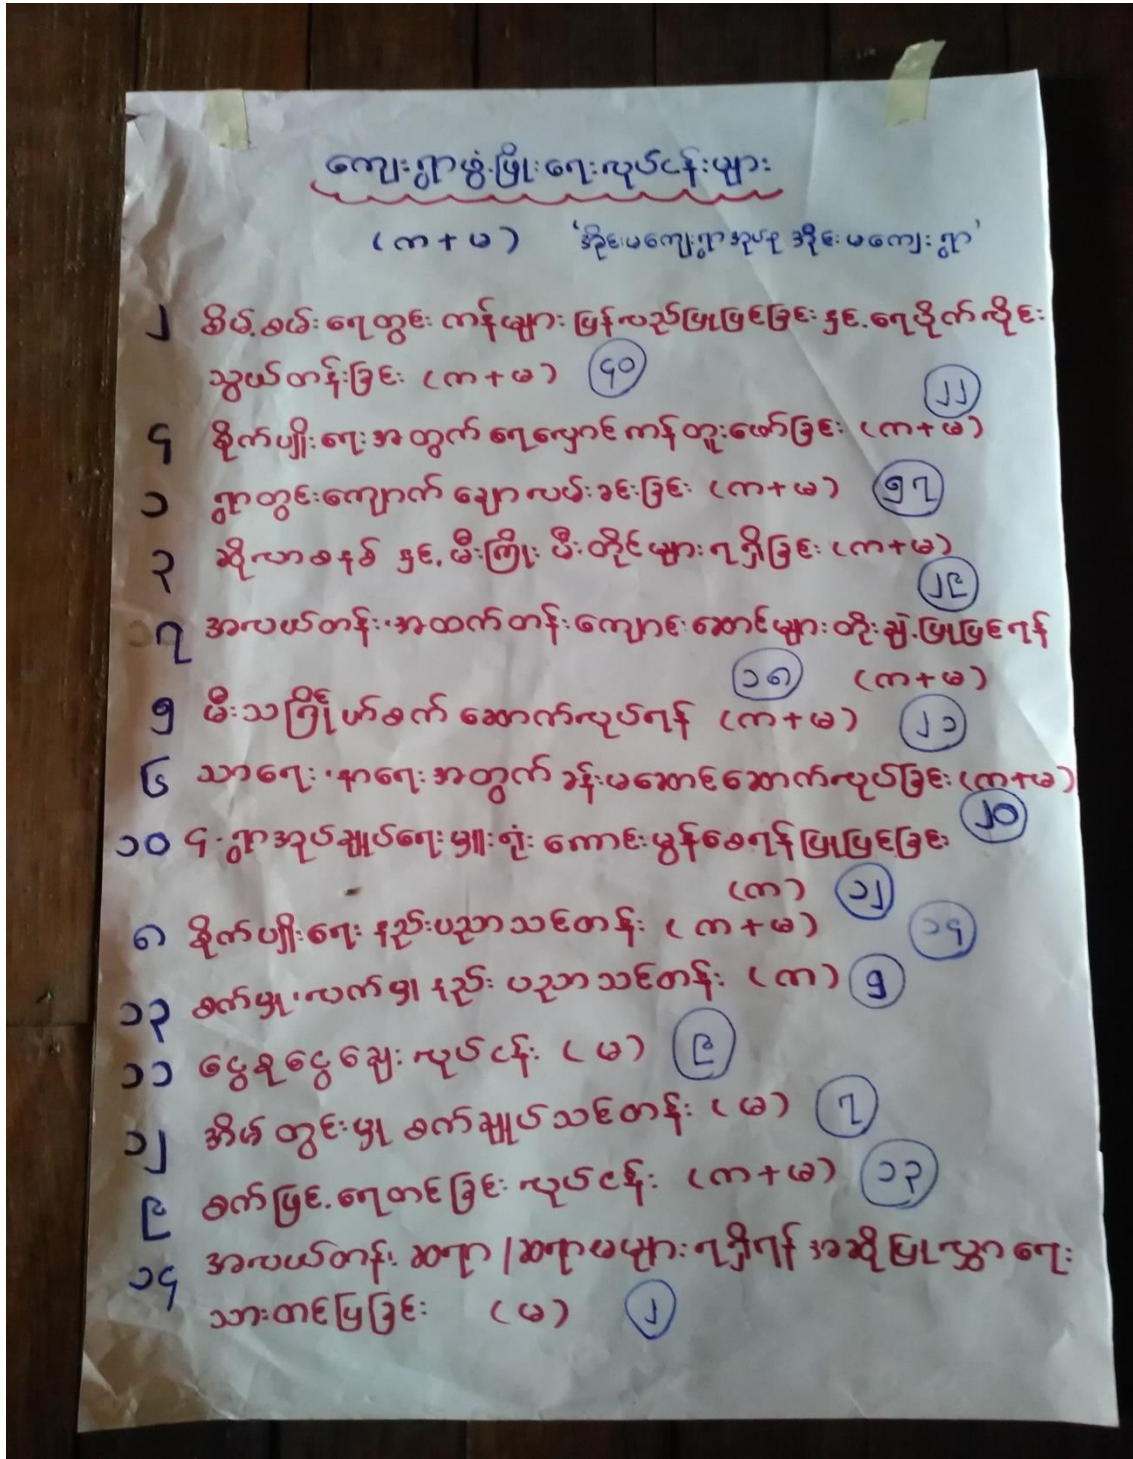 ကျေးရွာဖွံ့ဖြိုးရေးလုပ်ငန်းများ
(က + မ) 'အိုင်းမကျေးရွာအုပ်စု အိုင်းမကျေးရွာ'
၂ အိမ့်စမ်းရေတွင်း ကန်များ ပြန်လည်ပြုပြင်ခြင်း နှင့် ရေပိုက်လိုင်း
သွယ်တန်းခြင်း (က + မ) ၄၀
၄ စိုက်ပျိုးရေးအတွက် ရေလှောင်ကန်တူးဖော်ခြင်း (က + မ) ၂၂
၁ ရွာတွင်းကျောက်ချောလမ်းခင်းခြင်း (က + မ) ၅၇
၃ ဆိုလာစနစ် နှင့် မီးကြိုး မီးတိုင်များ ရရှိခြင်း (က + မ)
၂၉
၇ အလယ်တန်း၊ အထက်တန်းကျောင်းဆောင်များ တိုးချဲ့ပြုပြင်ရန်
၁၈ (က + မ)
၅ မီးသင်္ဂြိုဟ်စက် ဆောက်လုပ်ရန် (က + မ) ၂၁
၆ သာရေး၊ နာရေးအတွက် ခန်းမဆောင်ဆောက်လုပ်ခြင်း (က + မ)
၁၀ ၄-ရွာအုပ်ချုပ်ရေးမှူးရုံး ကောင်းမွန်စေရန်ပြုပြင်ခြင်း ၂၀
(က) ၁၂
၈ စိုက်ပျိုးရေး နည်းပညာသင်တန်း (က + မ) ၁၄
၁၃ စက်မှု၊ လက်မှု နည်းပညာသင်တန်း (က) ၅
၁၁ ငွေစုငွေချေး လုပ်ငန်း (မ) ၉
၁၂ အိမ်တွင်းမှု စက်ချုပ်သင်တန်း (မ) ၇
၉ စက်ဖြင့် ရေတင်ခြင်း လုပ်ငန်း (က + မ) ၁၃
၁၄ အလယ်တန်း ဆရာ / ဆရာမများ ရရှိရန် အဆိုပြုလွှာ ရေး
သားတင်ပြခြင်း (မ) ၂